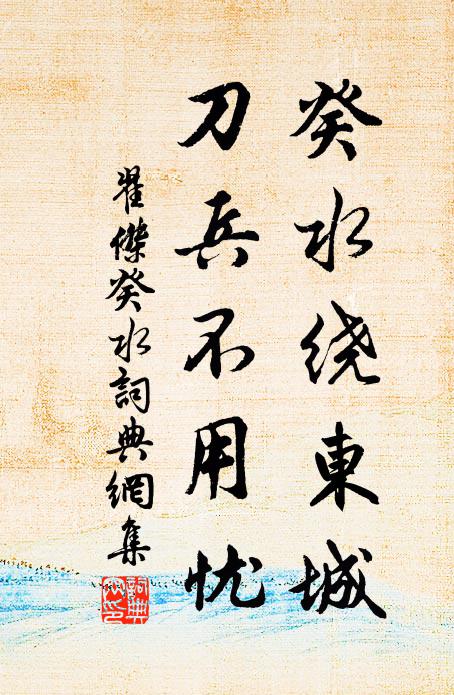 癸水绕東城
刀兵不用忧
翟傑癸水詞典網集